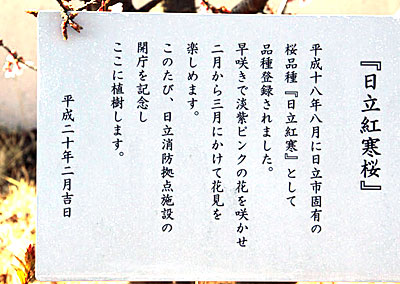 『日立紅寒桜』
平成十八年八月に日立市固有の
桜品種『日立紅寒』として
品種登録されました。
早咲きで淡紫ピンクの花を咲かせ
二月から三月にかけて花見を
楽しめます。
このたび、日立消防拠点施設の
開庁を記念し
ここに植樹します。
平成二十年二月吉日